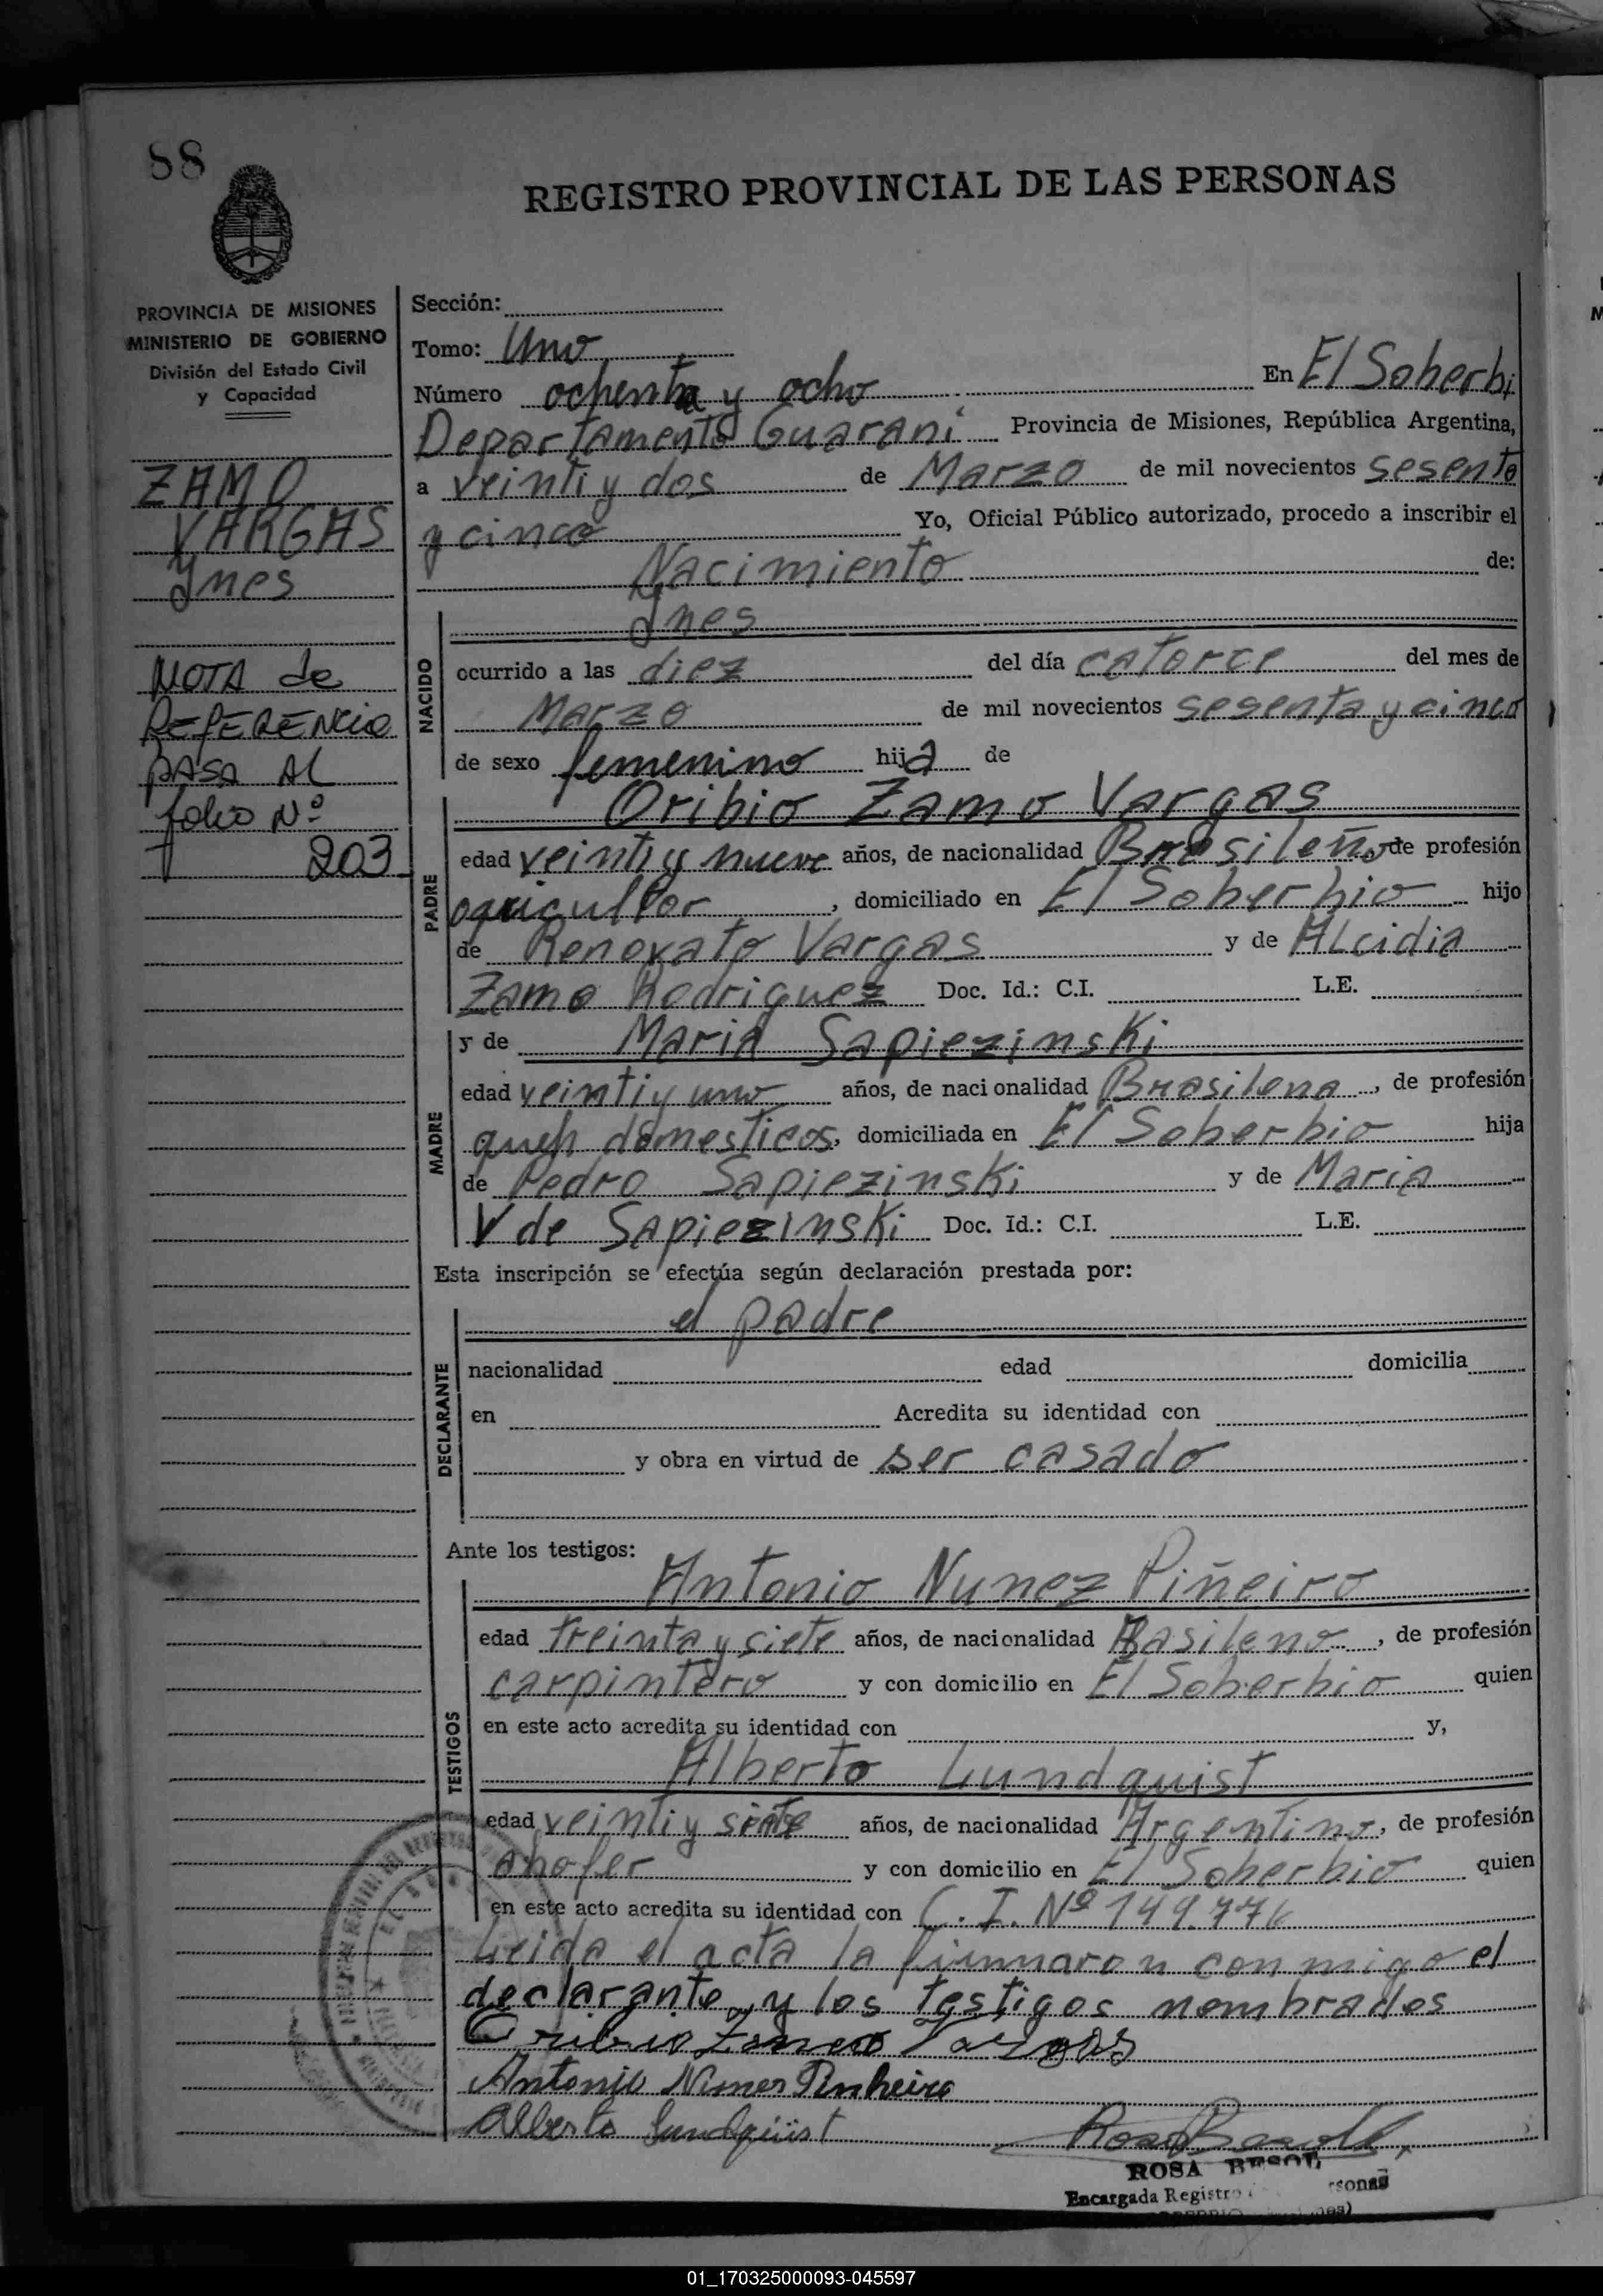 88
REGISTRO PROVINCIAL DE LAS PERSONAS
PROVINCIA DE MISIONES
MINISTERIO DE GOBIERNO
División del Estado Civil
y Capacidad
ZAMO
VARGAS
Ynes
NOTA de
REFERENCIA
PASA AL
folio Nº
203
Sección:
Tomo: Uno
Número ochenta y ocho En El Soberbi
Departamento Guarani Provincia de Misiones, República Argentina,
a veinti y dos de Marzo de mil novecientos sesenta
y cinco Yo, Oficial Público autorizado, procedo a inscribir el
Nacimiento de:
NACIDO
Ynes
ocurrido a las diez del día catorce del mes de
Marzo de mil novecientos sesenta y cinco
de sexo femenino hija de
PADRE
Oribio Zamo Vargas
edad veinti y nueve años, de nacionalidad Brasileño de profesión
agricultor, domiciliado en El Soberbio hijo
de Renovato Vargas y de Alcidia
Zamo Rodriguez Doc. Id.: C.I. L.E.
MADRE
y de Maria Sapiezinski
edad veinti y uno años, de naci onalidad Brasilena, de profesión
queh domesticos, domiciliada en El Soberbio hija
de Pedro Sapiezinski y de Maria
V de Sapiezinski Doc. Id.: C.I. L.E.
Esta inscripción se efectúa según declaración prestada por:
DECLARANTE
el padre
nacionalidad edad domicilia
en Acredita su identidad con
y obra en virtud de ser casado
Ante los testigos:
TESTIGOS
Antonio Nunez Piñeiro
edad treinta y siete años, de nacionalidad Basileno, de profesión
carpintero y con domicilio en El Soberbio quien
en este acto acredita su identidad con y,
Alberto Lundquist
edad veinti y siete años, de nacionalidad Argentino, de profesión
chofer y con domicilio en El Soberbio quien
en este acto acredita su identidad con C. I. Nº 149.776
Leida el acta la firmaron conmigo el
declarante y los testigos nombrados
Oribio Zamo Vargas
Antonio Nunes Pinheiro
Alberto Lundqüist
ROSA
Encargada Registro
01_170325000093-045597